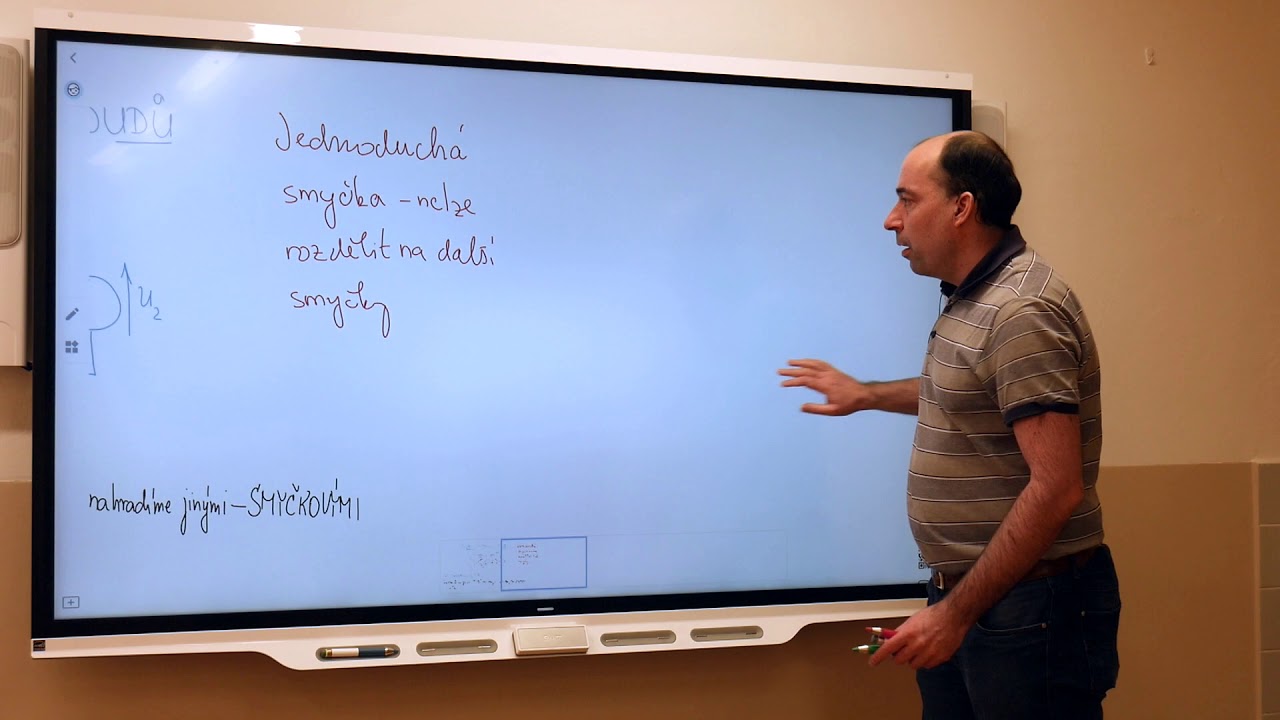 JUDŮ
Jednoduchá
smyčka – nelze
rozdělit na další
smyčky
U2
nahradíme jinými – SMYČKOVÍMI